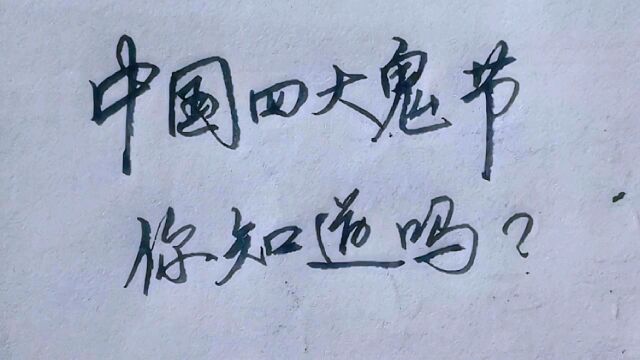 中国四大鬼节
你知道吗?